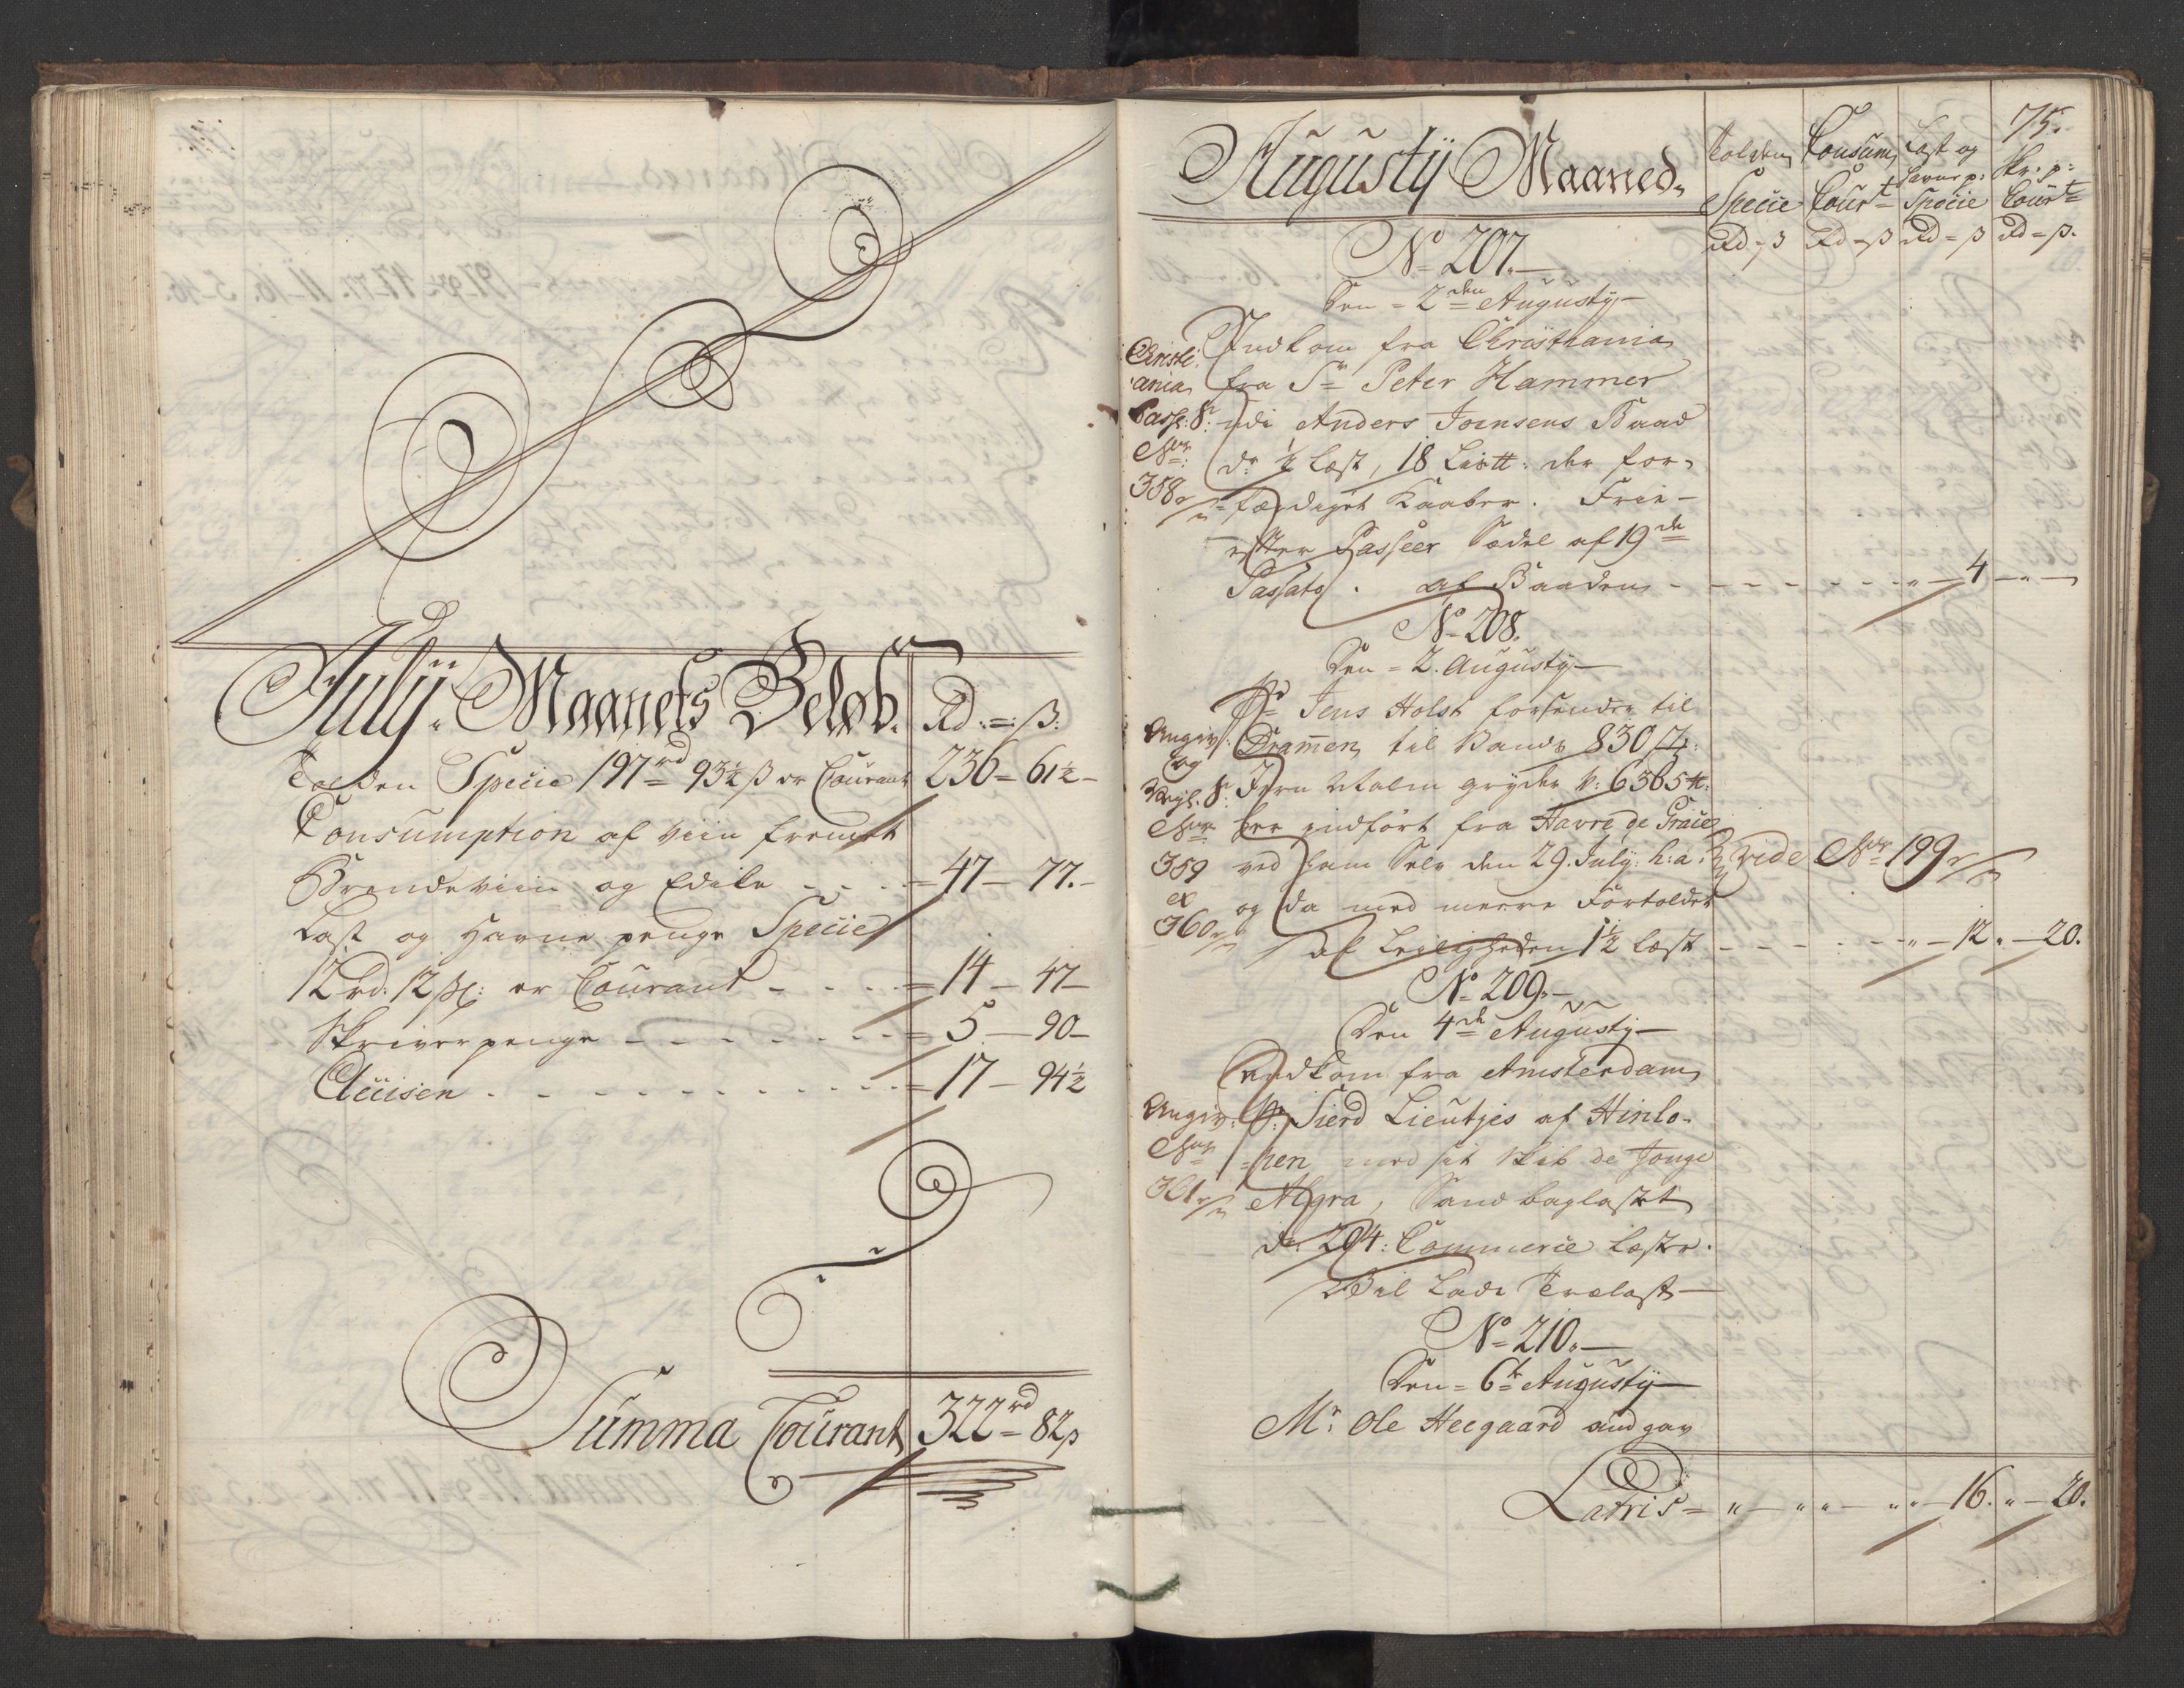 Julÿ Maanets Beløb. Rd = ß:
Tolden Specie 197rd 93½ ß er Courant 236 = 61½ -
Consumption af Viin fremet
Brendeviin og Edike - - - = 47 - 77. -
Last og Havne penge Specie
12 rd. 12 ß: er Courant - - - = 14 - 47 -
Skriverpenge - - - - - - - = 5 - 90 -
Accisen - - - - - - - - - = 17 - 94½
Summa Courant 322rd = 82ß
75.
Augustÿ Maaned.
Tolden Specie Rd = ß
Consum, Courᵗ Rd = ß
Last og Havne p: Specie Rd = ß
Skr: p: Courᵗ Rd = ß.
No 207. -
Den = 2den Augustÿ -
Christi
ania
Passe: S:
No:
358
Indkom fra Christiania
fra Sr Peter Hammer
udi Anders Joensens Baad
dr ½ Læst, 18 Lis℔: der for-
færdiget Kaaber. Frie -
efter Passeer Sædel af 19de
Passato. af Baaden - - - - - - - " - 4 - " -
No 208.
Den = 2. Augustÿ -
Angiv:
og
S:
Nor
359
et
360
Sr Jens Holst forsender til
Dramen til Vands 830 St:
Jern Malm gryder V: 6365 ℔:
her indført fra Havre de Grace
ved ham Selv den 29. Julÿ h: a: vide Nor 199
og da med meere Fortoldet
af Leiligheden 1½ Læst - - - - - " - 12. " - 20.
No 209. -
Den 4de Augustÿ -
Angiv:
Nor
361
Indkom fra Amsterdam
Sr. Sierd Lieutjes af Hinlo-
-pen med sit Skib de Jonge
Algra, Sand baglastet
dr 204: Commerce Læster.
Vil Lade Trælast -
No 210. -
Den = 6te Augustÿ -
Mr: Ole Heegaard andgav
Latris = " - " " - " " - 16. " - 20.